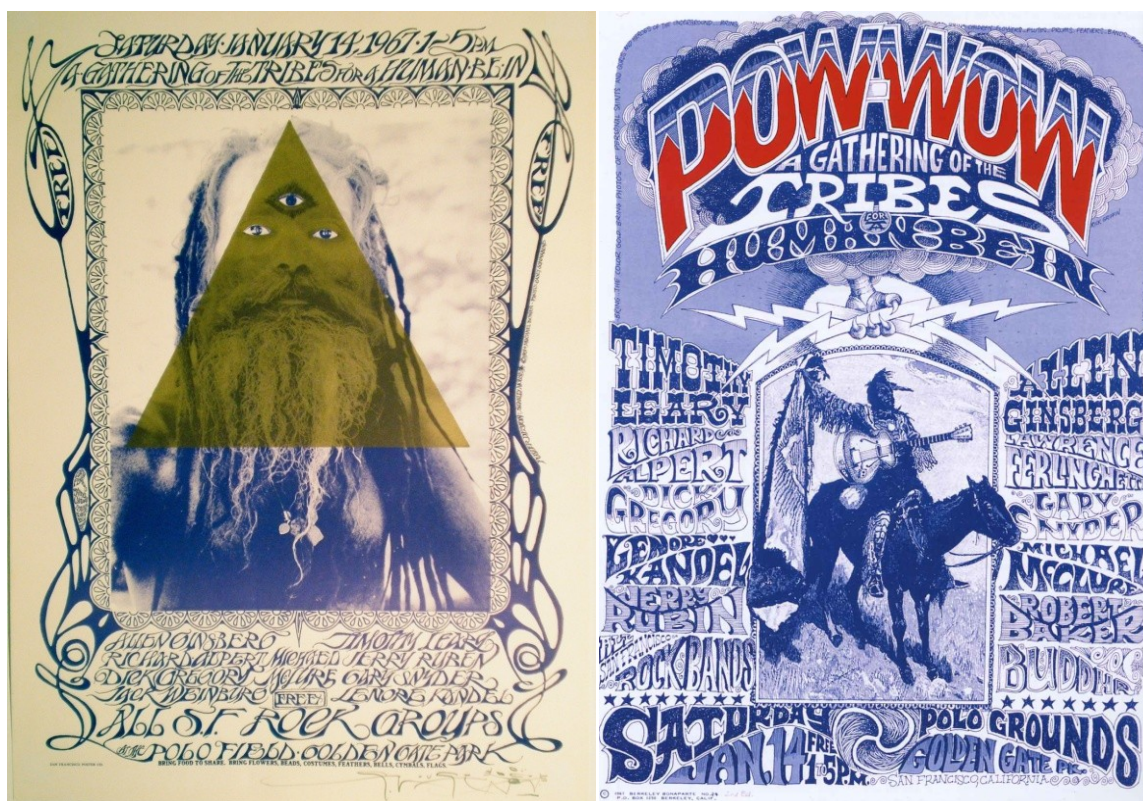 SATURDAY·JANUARY 14, 1967·1-5PM
A GATHERING OF THE TRIBES FOR A HUMAN BE-IN
FREE
FREE
ALLEN GINSBERG TIMOTHY LEARY
RICHARD ALPERT MICHAEL JERRY RUBEN
DICK GREGORY McCLURE GARY SNYDER
JACK WEINBURG FREE LENORE KANDEL
ALL S.F. ROCK GROUPS
AT THE POLO FIELD·GOLDEN GATE PARK
BRING FOOD TO SHARE, BRING FLOWERS, BEADS, COSTUMES, FEATHERS, BELLS, CYMBALS, FLAGS
POW-WOW
A GATHERING OF THE
TRIBES
FOR A
HUMAN BE-IN
TIMOTHY
LEARY
RICHARD
ALPERT
DICK
GREGORY
LENORE
KANDEL
JERRY
RUBIN
ROCK BANDS
ALLEN
GINSBERG
LAWRENCE
FERLINGHETTI
GARY
SNYDER
MICHAEL
McCLURE
ROBERT
BAKER
BUDDHA
SATURDAY
JAN. 14 FREE
1 TO 5 P.M.
POLO GROUNDS
GOLDEN GATE PK.
SAN FRANCISCO, CALIFORNIA
© 1967 BERKELEY BONAPARTE NO.
P.O. BOX 1250 BERKELEY, CALIF.